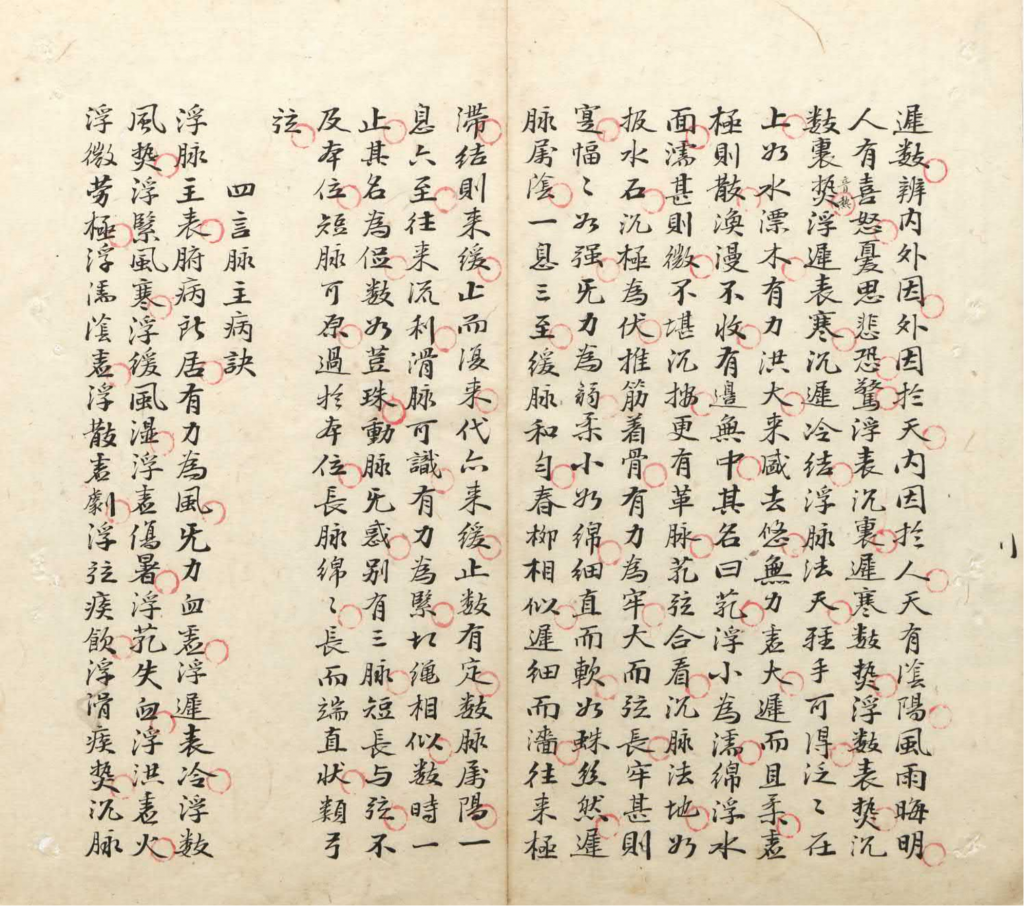 遲数辨内外因外因於天内因於人天有陰陽風雨晦明
人有喜怒憂思悲恐驚浮表沉裏遲寒数熱浮数表熱沉
数裏熱浮遲表寒沉遲冷结浮脉法天輕手可得泛〻在
上如水漂木有力洪大来盛去悠無力虚大遲而且柔虚
極則散渙漫不收有邊無中其名曰芤浮小為濡綿浮水
面濡甚則微不堪沉按更有革脉芤弦合看沉脉法地如
投水石沉極為伏推筋着骨有力為牢大而弦長牢甚則
寔愊〻如强无力為弱柔小如綿細直而軟如蛛絲然遲
脉属陰一息三至緩脉和匀春柳相似遲細而濇往来極
滯结則来緩止而復来代亦来緩止数有定数脉属陽一
息六至往来流利滑脉可識有力為緊切繩相似数時一
止其名為促数如荳珠動脉无惑别有三脉短長与弦不
及本位短脉可原過於本位長脉綿〻長而端直状類弓
弦
四言脉主病訣
浮脉主表腑病所居有力為風无力血虚浮遲表冷浮数
風熱浮緊風寒浮緩風湿浮虚傷暑浮芤失血浮洪虚火
浮微劳極浮濡陰虚浮散虚劇浮弦痰飲浮滑痰熱沉脉